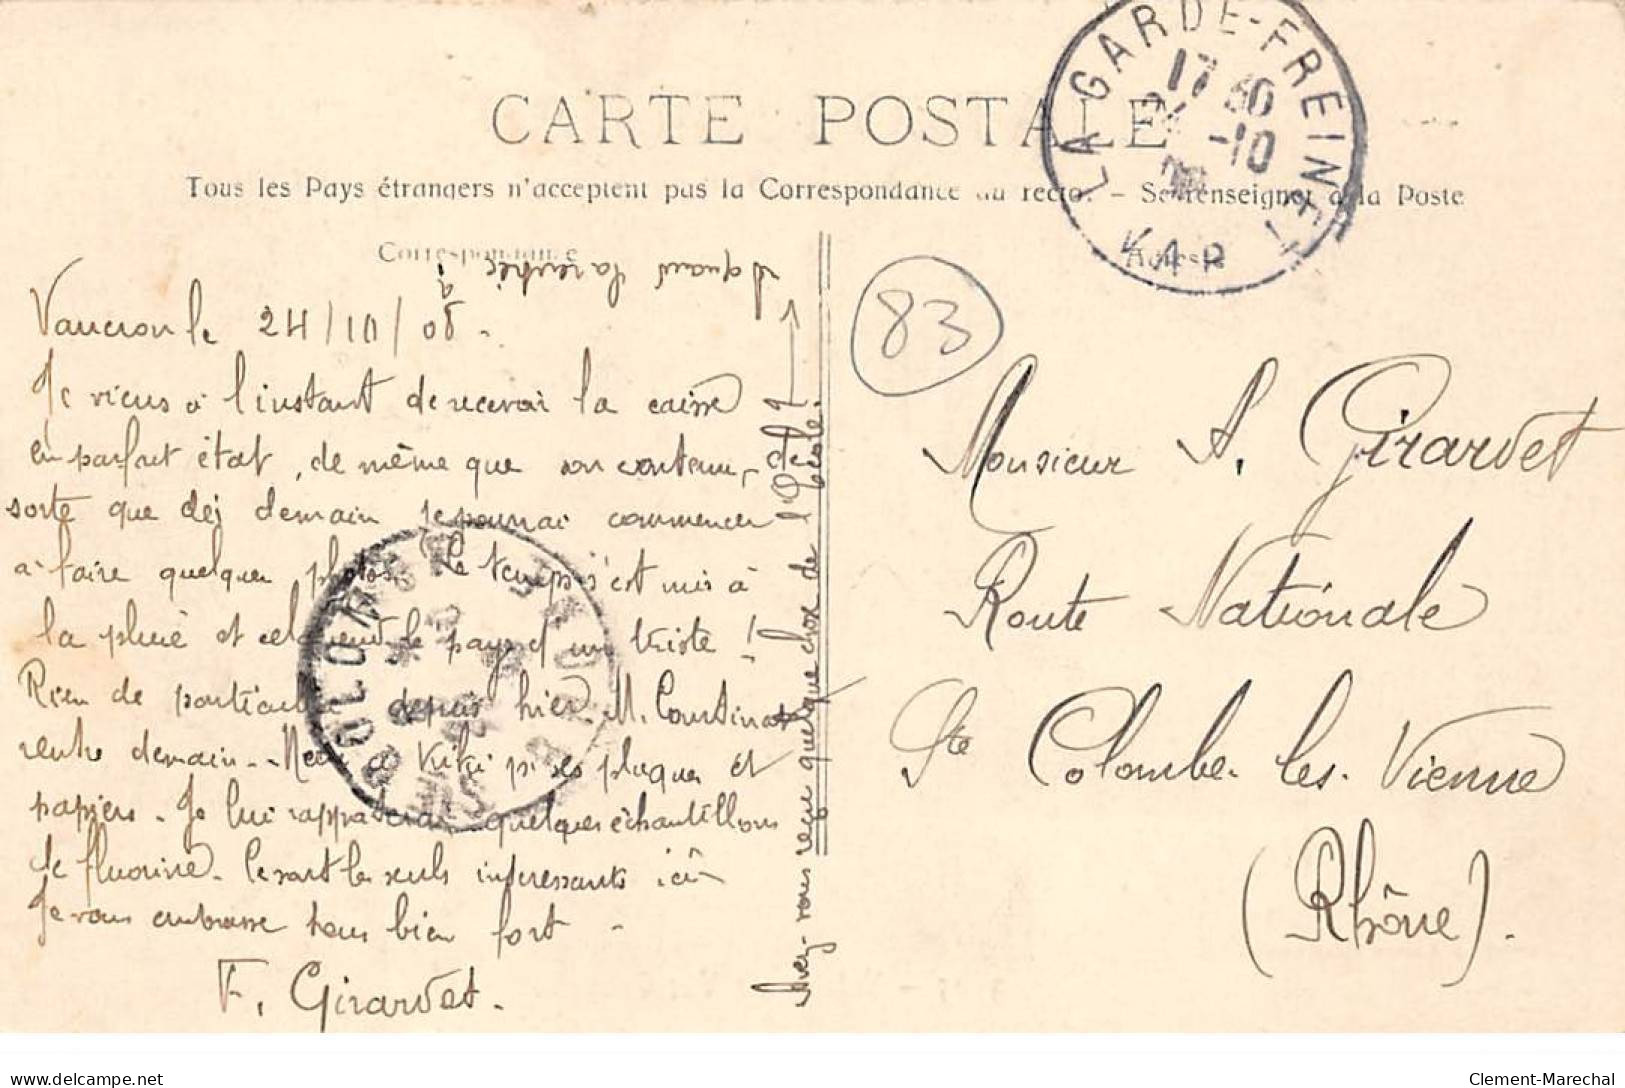 CARTE POSTALE
Tous les Pays étrangers n'acceptent pas la Correspondance au recto. - Se renseigner à la Poste
Correspondance
Adresse
LA GARDE-FREINET
17 30
24 -10
VAR
83
Vaucron le 24/10/08.
Je viens à l'instant de recevoir la caisse
en parfait état, de même que son contenu,
sorte que dej demain je pourrai commencer
à faire quelques photos. Le temps s'est mis à
la pluie et cela rend le pays d'un triste !
Rien de particulier depuis hier. M. Courtinat
rentre demain. à Kiki ses plaques et
papiers. Je lui rapporterai quelques échantillons
de fluorine. Ce sont les seuls intéressants ici
Je vous embrasse tous bien fort.
F. Girardet.
Avez-vous reçu quelque chose de l'école
et quand la rentrée
STE COLOMBE
Monsieur A. Girardet
Route Nationale
Ste Colombe-les-Vienne
(Rhône).
delcampe.net
Clement-Marechal